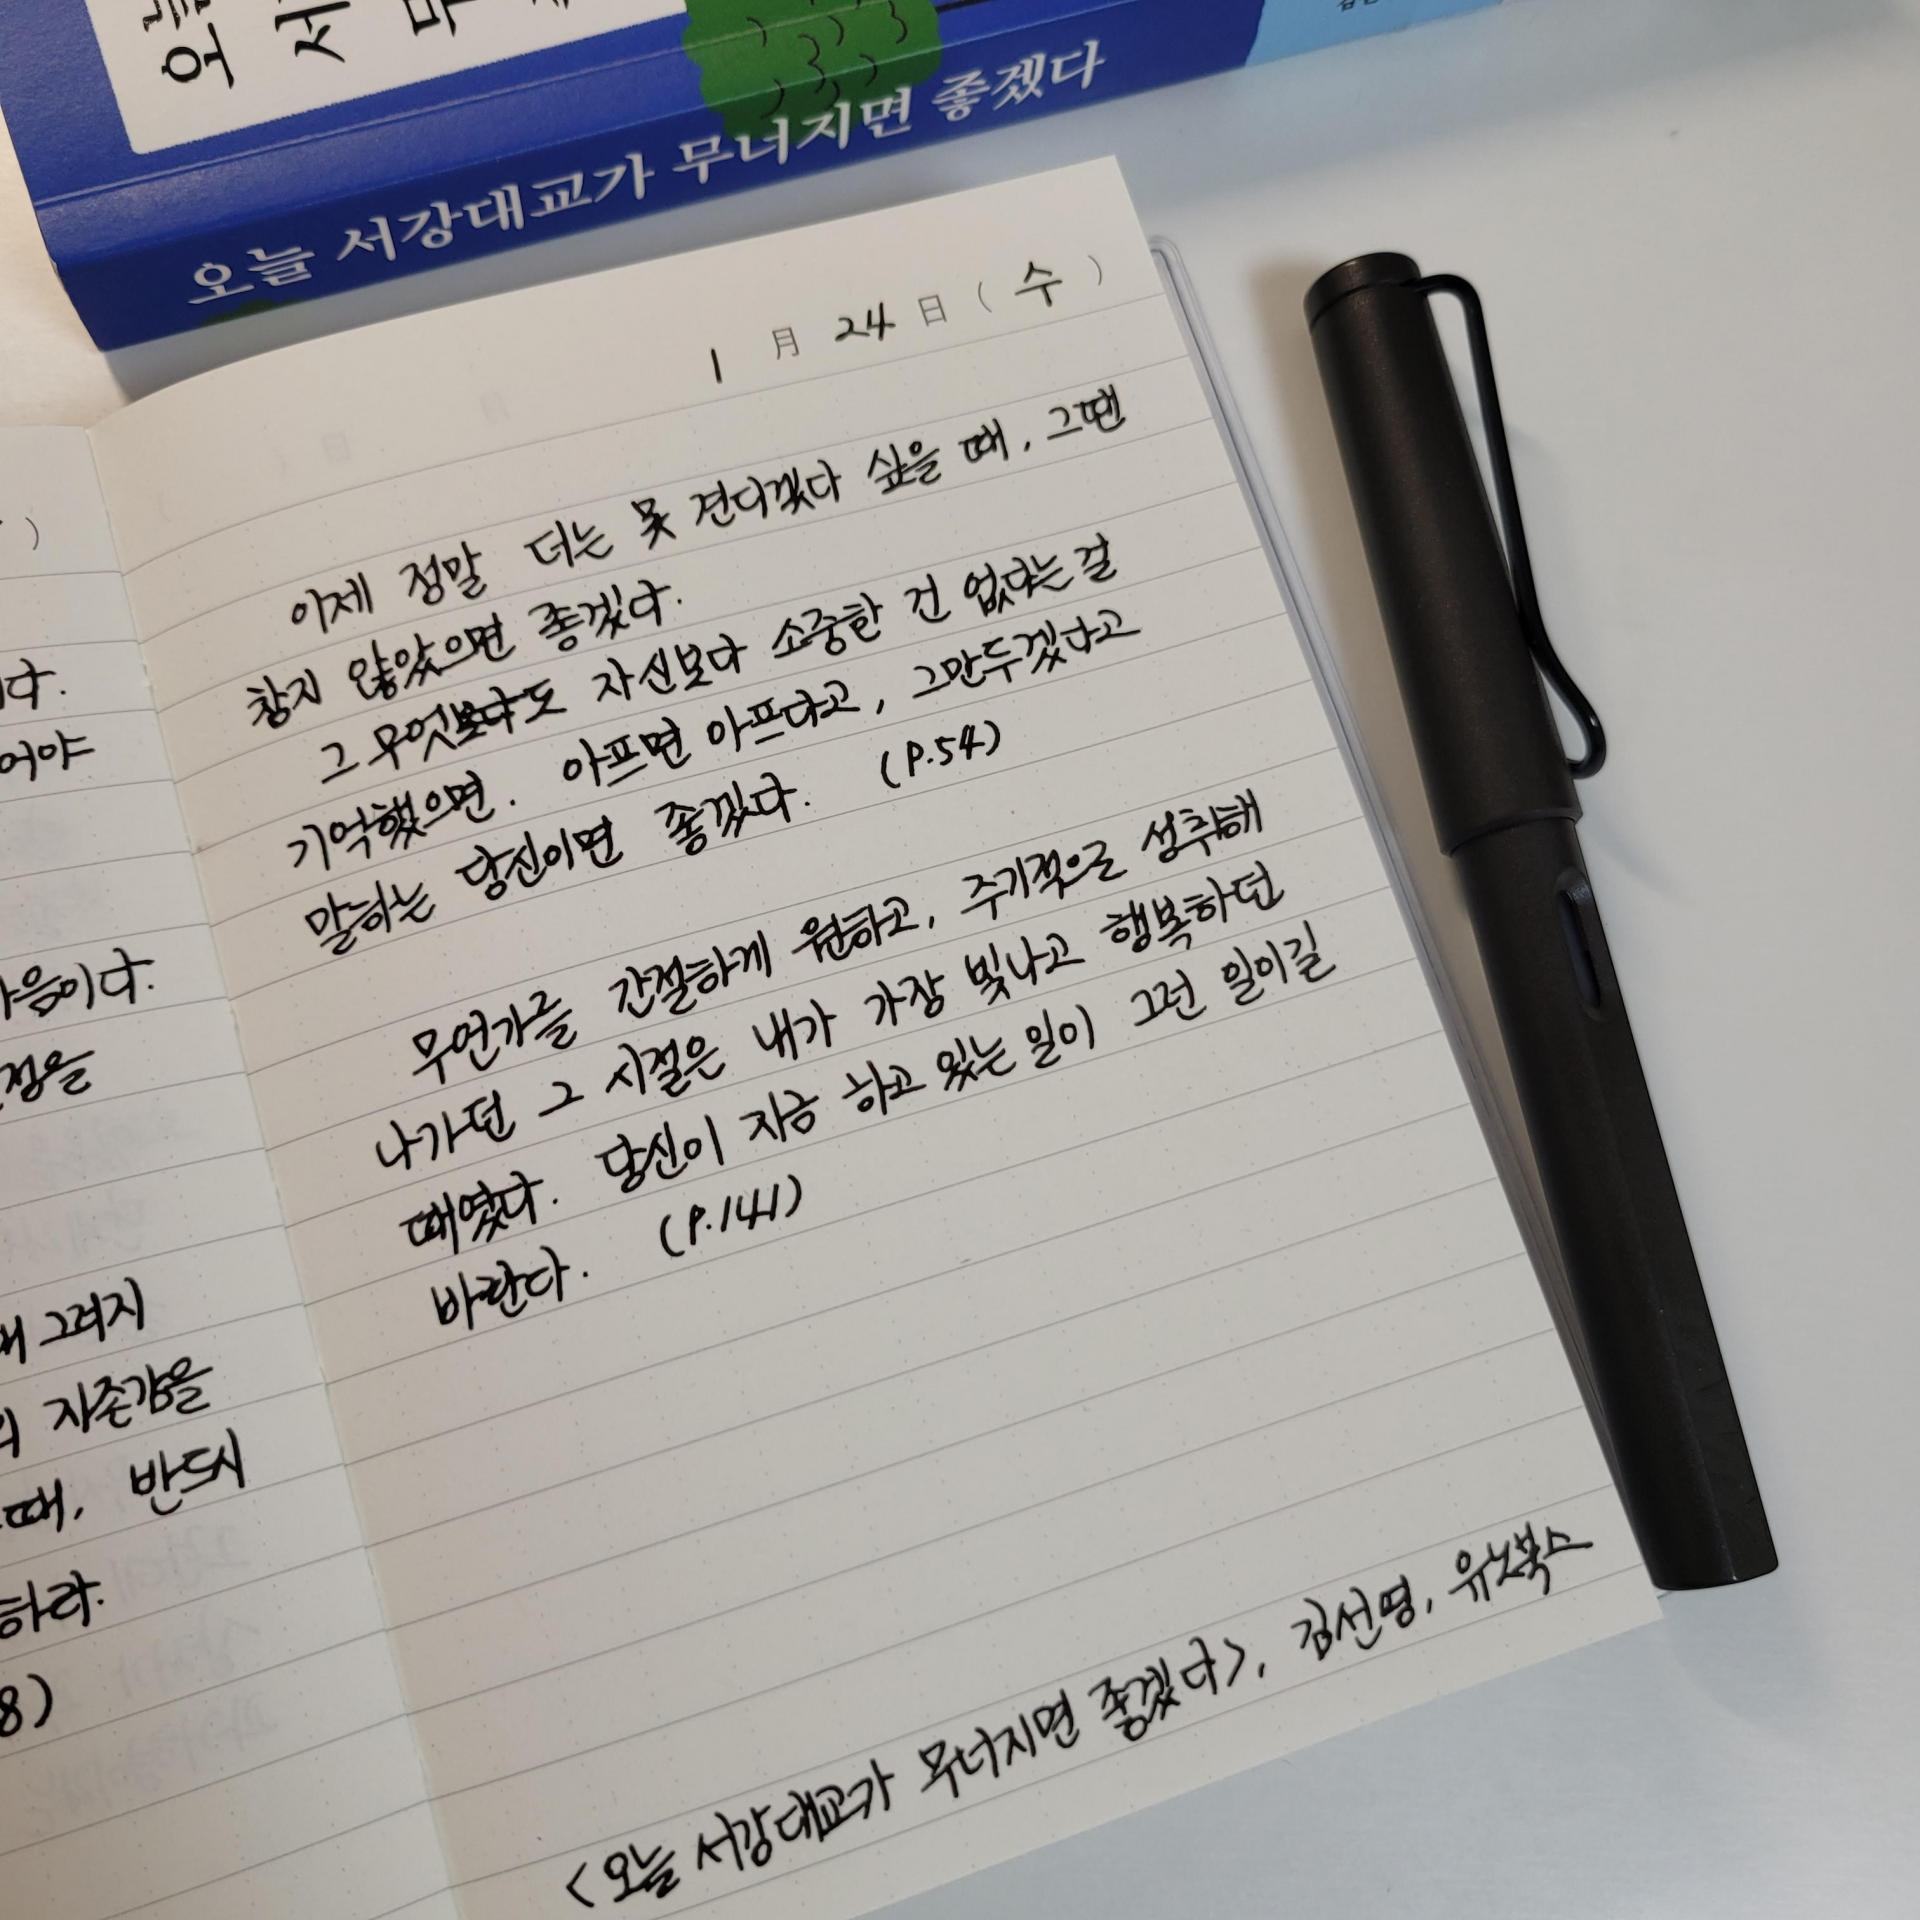 오늘
서
무
오늘 서강대교가 무너지면 좋겠다
1 月 24 日 ( 수 )
이제 정말 더는 못 견디겠다 싶을 때, 그땐
참지 않았으면 좋겠다.
그 무엇보다도 자신보다 소중한 건 없다는 걸
기억했으면. 아프면 아프다고, 그만두겠다고
말하는 당신이면 좋겠다. (P.54)
무언가를 간절하게 원하고, 주기적으로 성취해
나가던 그 시절은 내가 가장 빛나고 행복하던
때였다. 당신이 지금 하고 있는 일이 그런 일이길
바란다. (P.141)
<오늘 서강대교가 무너지면 좋겠다>, 김선영, 유노북스
)
다.
어야
음이다.
정을
그러지
자존감을
때, 반드시
하라.
8)